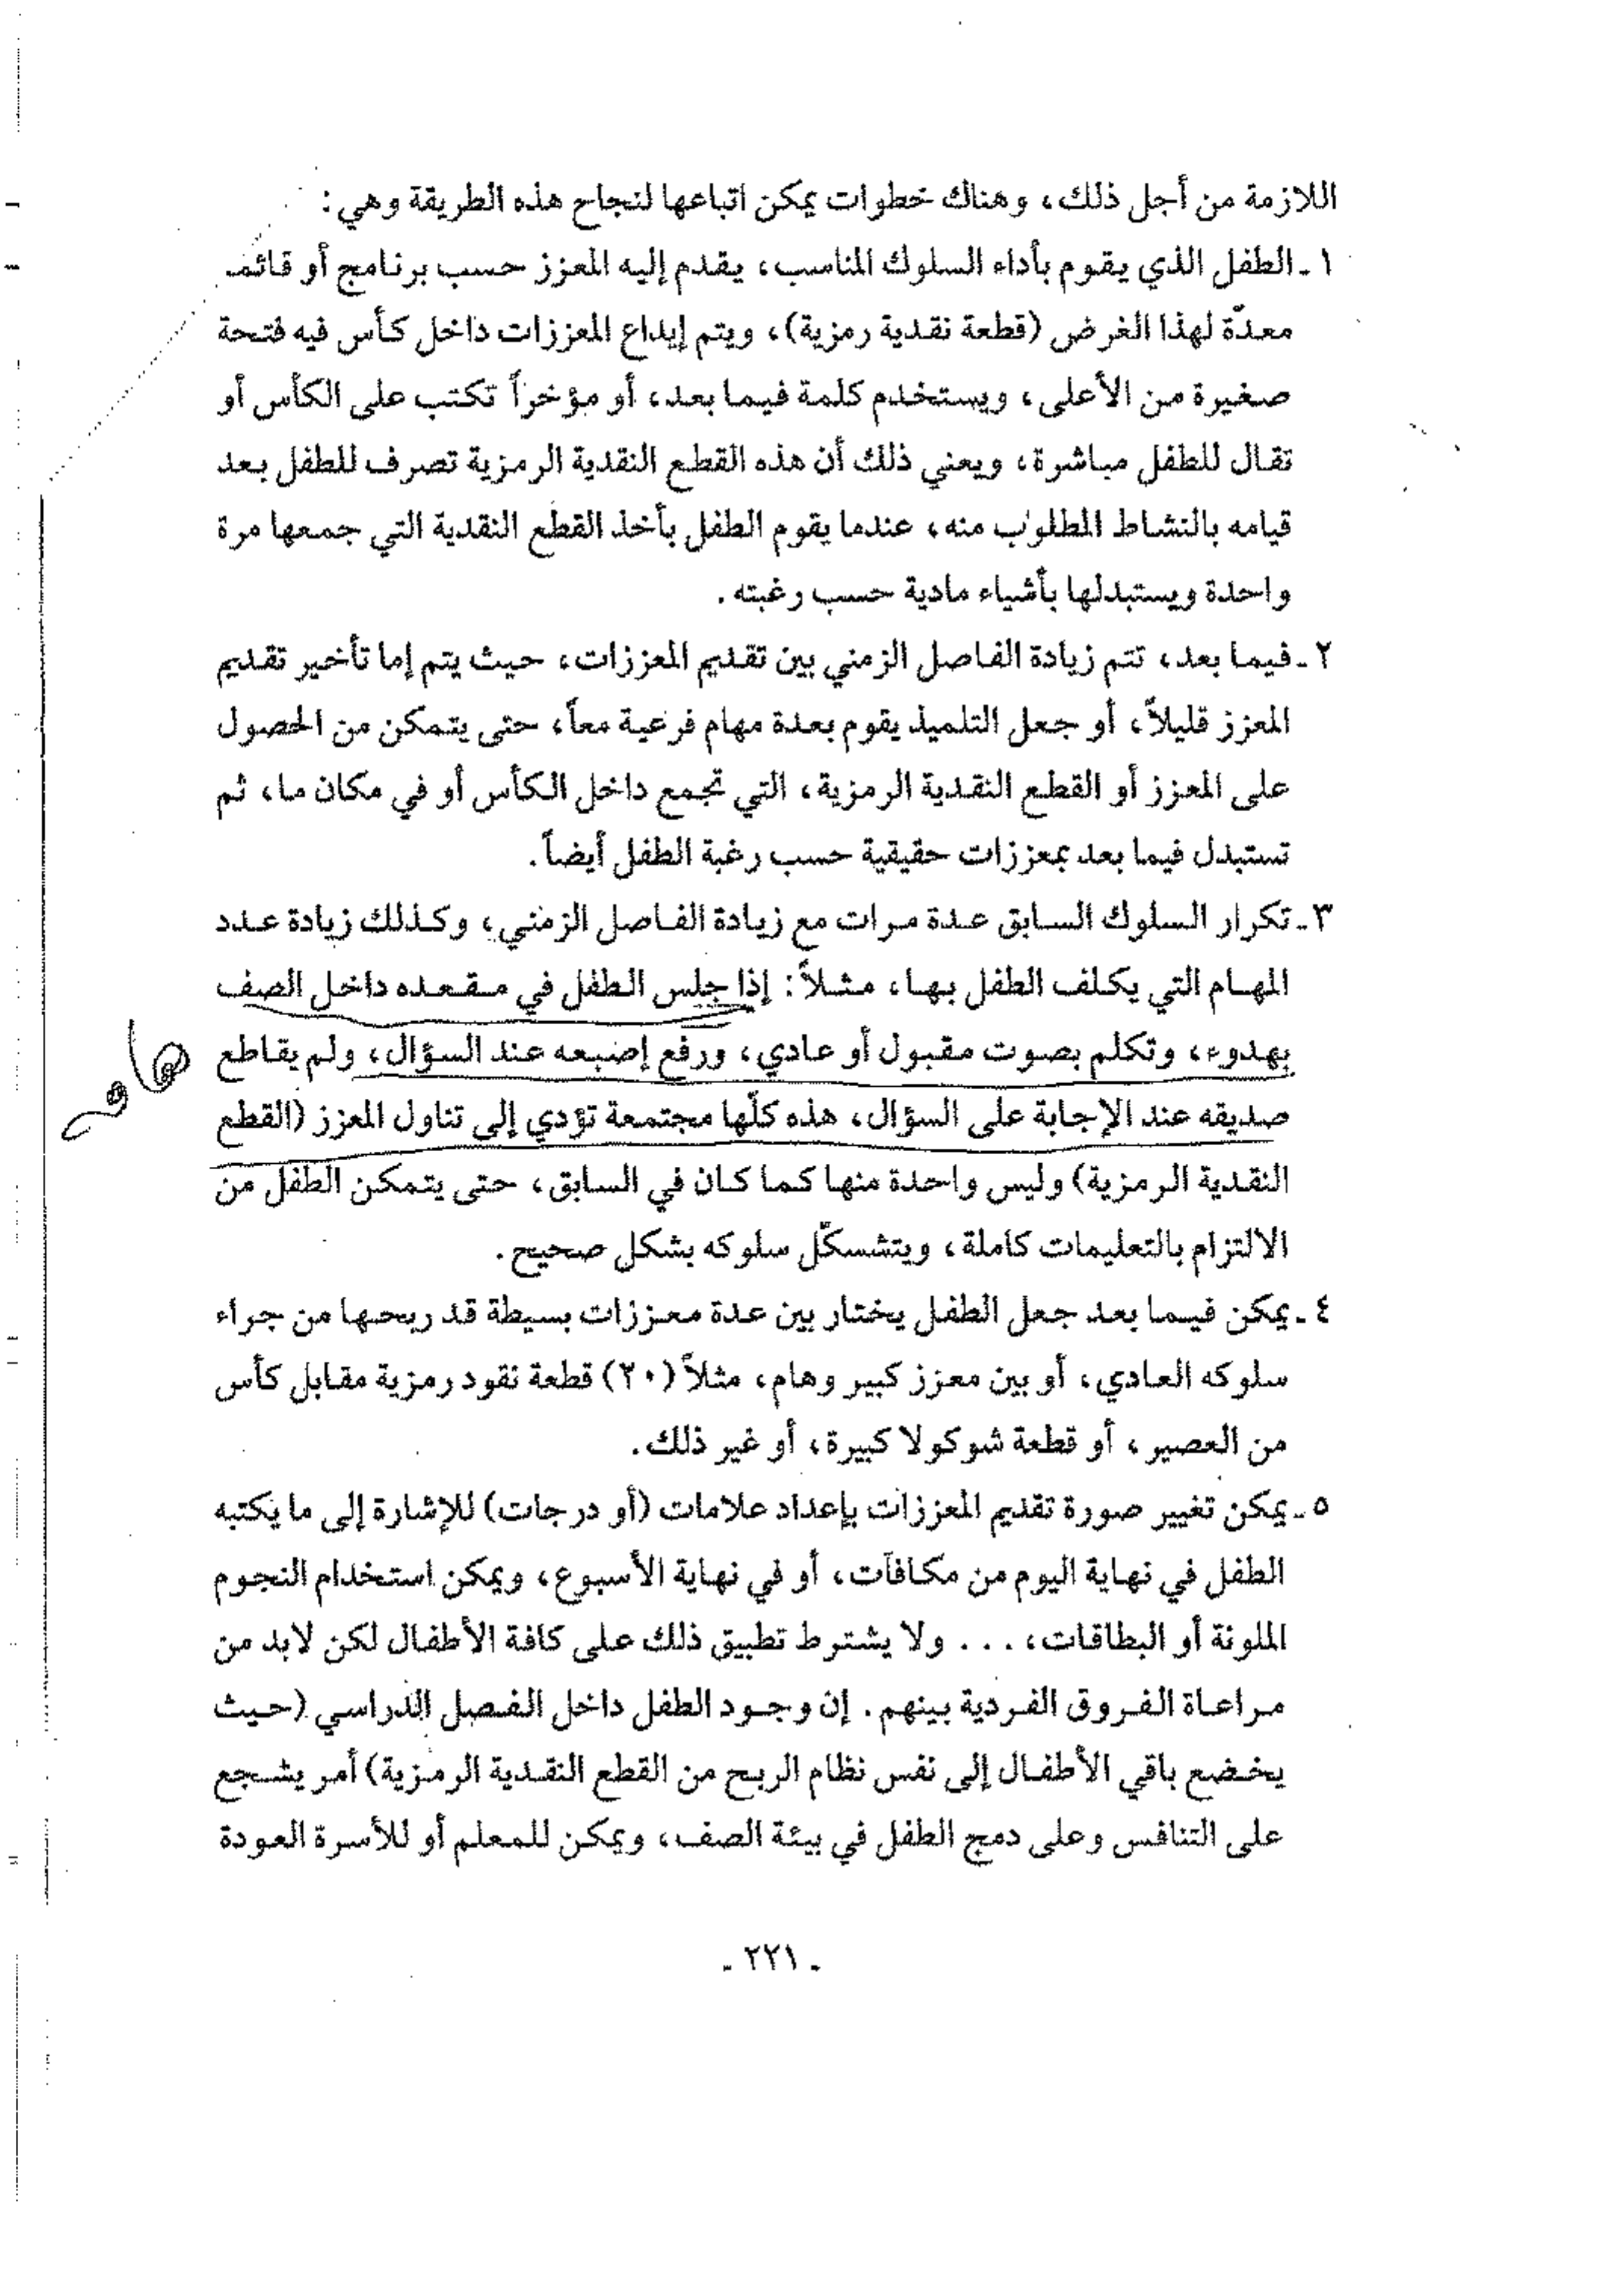 اللازمة من أجل ذلك، وهناك خطوات يمكن اتباعها لنجاح هذه الطريقة وهي:
١ـ الطفل الذي يقوم بأداء السلوك المناسب، يقدم إليه المعزز حسب برنامج أو قائمة
معدّة لهذا الغرض (قطعة نقدية رمزية)، ويتم إيداع المعززات داخل كأس فيه فتحة
صغيرة من الأعلى، ويستخدم كلمة فيما بعد، أو مؤخراً تكتب على الكأس أو
تقال للطفل مباشرة، ويعني ذلك أن هذه القطع النقدية الرمزية تصرف للطفل بعد
قيامه بالنشاط المطلوب منه، عندما يقوم الطفل بأخذ القطع النقدية التي جمعها مرة
واحدة ويستبدلها بأشياء مادية حسب رغبته.
٢ـ فيما بعد، تتم زيادة الفاصل الزمني بين تقديم المعززات، حيث يتم إما تأخير تقديم
المعزز قليلاً، أو جعل التلميذ يقوم بعدة مهام فرعية معاً، حتى يتمكن من الحصول
على المعزز أو القطع النقدية الرمزية، التي تجمع داخل الكأس أو في مكان ما، ثم
تستبدل فيما بعد بمعززات حقيقية حسب رغبة الطفل أيضاً.
٣ـ تكرار السلوك السابق عدة مرات مع زيادة الفاصل الزمني، وكذلك زيادة عدد
المهام التي يكلف الطفل بها، مثلاً: إذا جلس الطفل في مقعده داخل الصف
بهدوء، وتكلم بصوت مقبول أو عادي، ورفع إصبعه عند السؤال، ولم يقاطع
هام
صديقه عند الإجابة على السؤال، هذه كلّها مجتمعة تؤدي إلى تناول المعزز (القطع
النقدية الرمزية) وليس واحدة منها كما كان في السابق، حتى يتمكن الطفل من
الالتزام بالتعليمات كاملة، ويتشسكّل سلوكه بشكل صحيح.
٤ـ يمكن فيما بعد جعل الطفل يختار بين عدة معززات بسيطة قد ربحها من جراء
سلوكه العادي، أو بين معزز كبير وهام، مثلاً (٢٠) قطعة نقود رمزية مقابل كأس
من العصير، أو قطعة شوكولا كبيرة، أو غير ذلك.
٥ـ يمكن تغيير صورة تقديم المعززات بإعداد علامات (أو درجات) للإشارة إلى ما يكتبه
الطفل في نهاية اليوم من مكافآت، أو في نهاية الأسبوع، ويمكن استخدام النجوم
الملونة أو البطاقات، ... ولا يشترط تطبيق ذلك على كافة الأطفال لكن لابد من
مراعاة الفروق الفردية بينهم. إن وجود الطفل داخل الفصل الدراسي (حيث
يخضع باقي الأطفال إلى نفس نظام الربح من القطع النقدية الرمزية) أمر يشجع
على التنافس وعلى دمج الطفل في بيئة الصف، ويمكن للمعلم أو للأسرة العودة
ـ ٢٢١ ـ